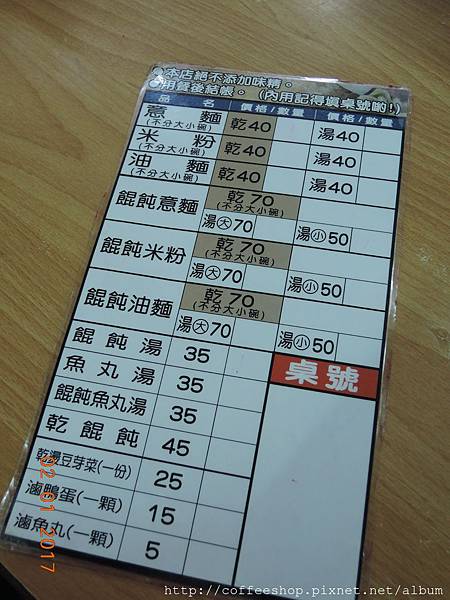 本店絕不添加味精。
用餐後結帳。(內用記得填桌號喲!)
品 名 價格/數量 價格/數量
意 麵 (不分大小碗) 乾40 湯40
米 粉 (不分大小碗) 乾40 湯40
油 麵 (不分大小碗) 乾40 湯40
餛飩意麵 乾70 (不分大小碗)
湯大70 湯小50
餛飩米粉 乾70 (不分大小碗)
湯大70 湯小50
餛飩油麵 乾70 (不分大小碗)
湯大70 湯小50
餛飩湯 35
桌號
魚丸湯 35
餛飩魚丸湯 35
乾餛飩 45
乾燙豆芽菜(一份) 25
滷鴨蛋(一顆) 15
滷魚丸(一顆) 5
02/01/2017
http://coffeeshop.pixnet.net/album